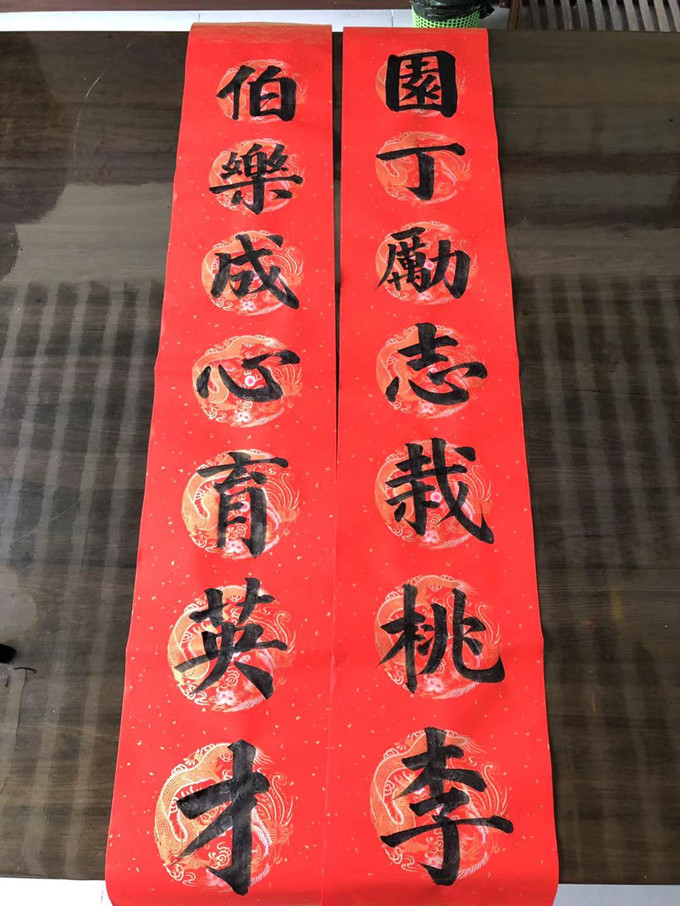 園丁勵志栽桃李
伯樂成心育英才